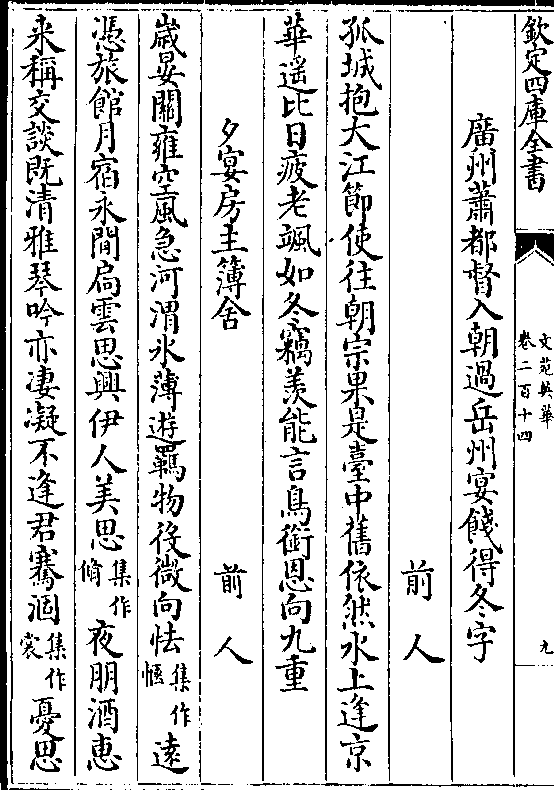 欽定四庫全書
文苑英華
卷二百十四
九
廣州蕭都督入朝過岳州宴餞得冬字
前人
孤城抱大江節使往朝宗果是臺中舊依然水上逢京
華遥比日疲老颯如冬竊羡能言鳥銜恩向九重
夕宴房主簿舍 前人
歲晏關雍空風急河渭氷薄遊羈物役微向怯集作愜遠
憑旅館月宿永閒扃雲思興伊人美思集作脩夜朋酒惠
来稱交談既清雅琴吟亦凄凝不逢君騫涸集作裳憂思